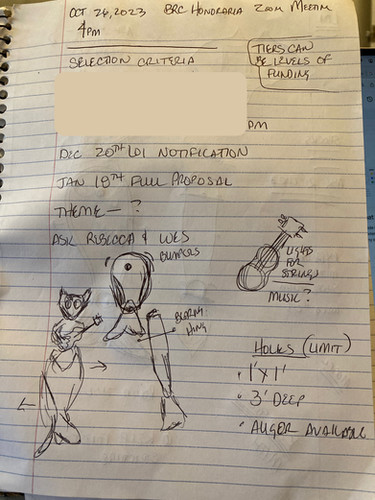 OCT. 26, 2023 BRC HONORARIA ZOOM MEETIN
4PM
TIERS CAN
BE LEVELS OF
FUNDING
SELECTION CRITERIA
PM
DEC 20TH LOI NOTIFICATION
JAN 18TH FULL PROPOSAL
THEME — ?
ASK REBECCA & WES
BUMPERS
LIGHTS
FOR
STRINGS
MUSIC?
HING
HOLES (LIMIT)
• 1' X 1'
• 3' DEEP
• AUGER AVAILABLE